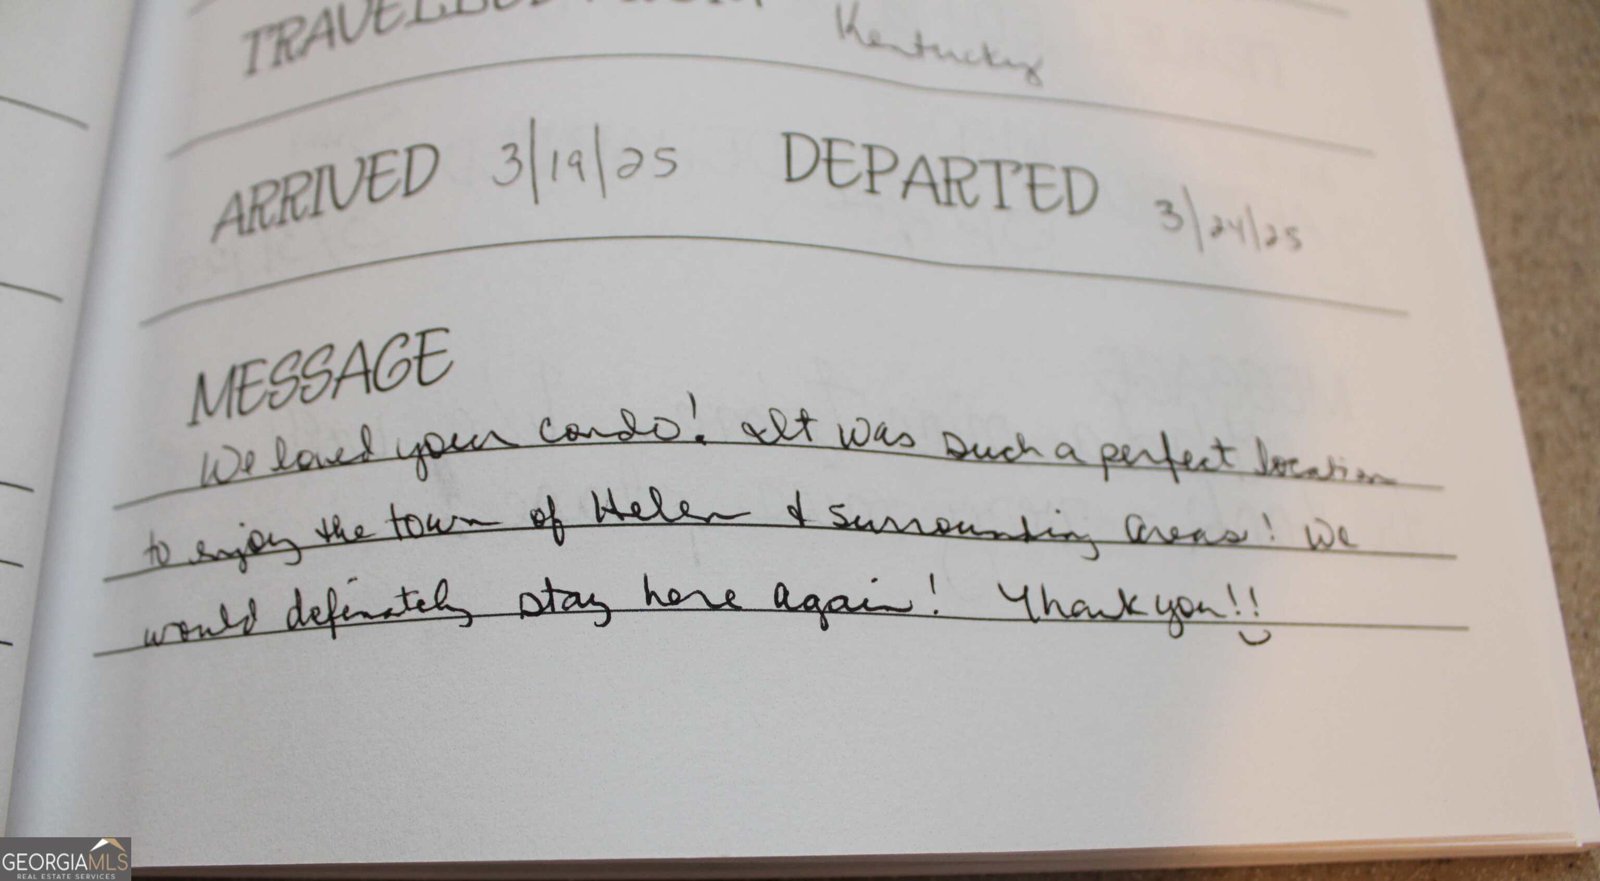 TRAVELLED FROM Kentucky
ARRIVED 3/19/25 DEPARTED 3/24/25
MESSAGE
We loved your condo! It was such a perfect location
to enjoy the town of Helen & surrounding areas! We
would definately stay here again! Thank you!!
GEORGIAMLS
REAL ESTATE SERVICES